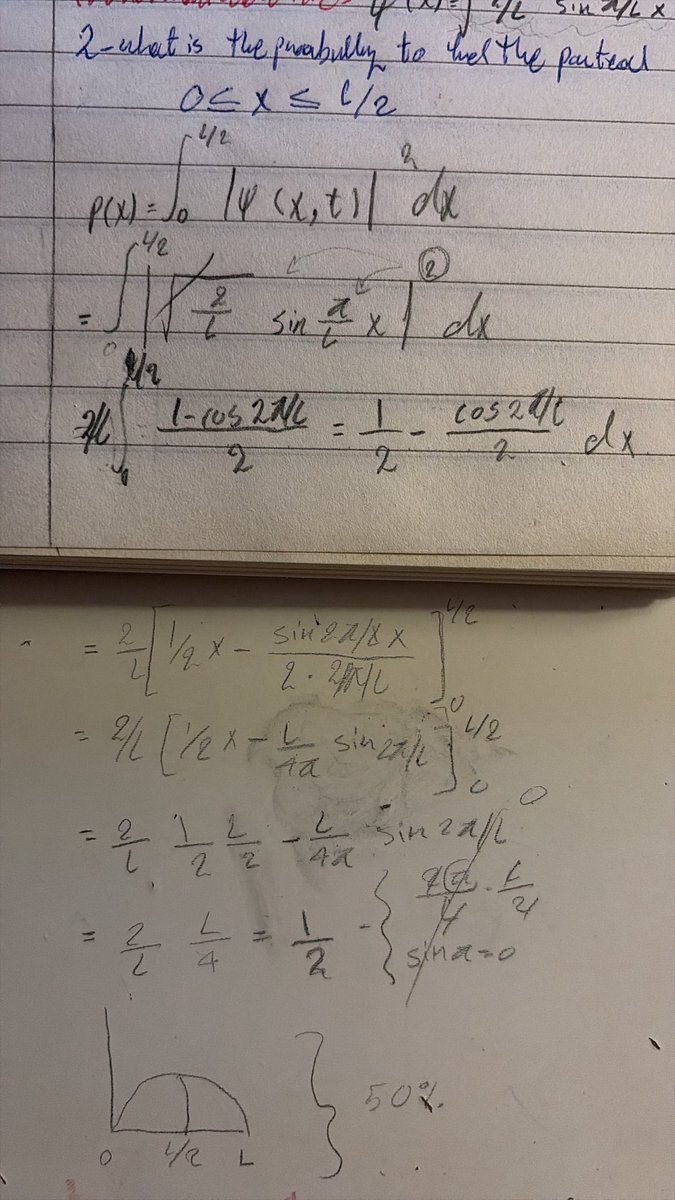 ψ(x)=√2/L sin π/L x
2-what is the probability to find the partical
0 ≤ x ≤ L/2
P(x) = ∫₀^{L/2} |ψ(x,t)|² dx
= ∫₀^{L/2} |√(2/L) sin π/L x|² dx
2/L ∫₀^{L/2} (1-cos 2π/L)/2 = 1/2 - (cos 2π/L)/2 dx
= 2/L [1/2 x - (sin 2π/L x)/(2 · 2π/L)]₀^{L/2}
= 2/L [1/2 x - L/4π sin 2π/L]₀^{L/2}
= 2/L 1/2 L/2 - L/4π sin 2π/L 0
= 2/L L/4 = 1/2
sin π = 0
50%
0 L/2 L